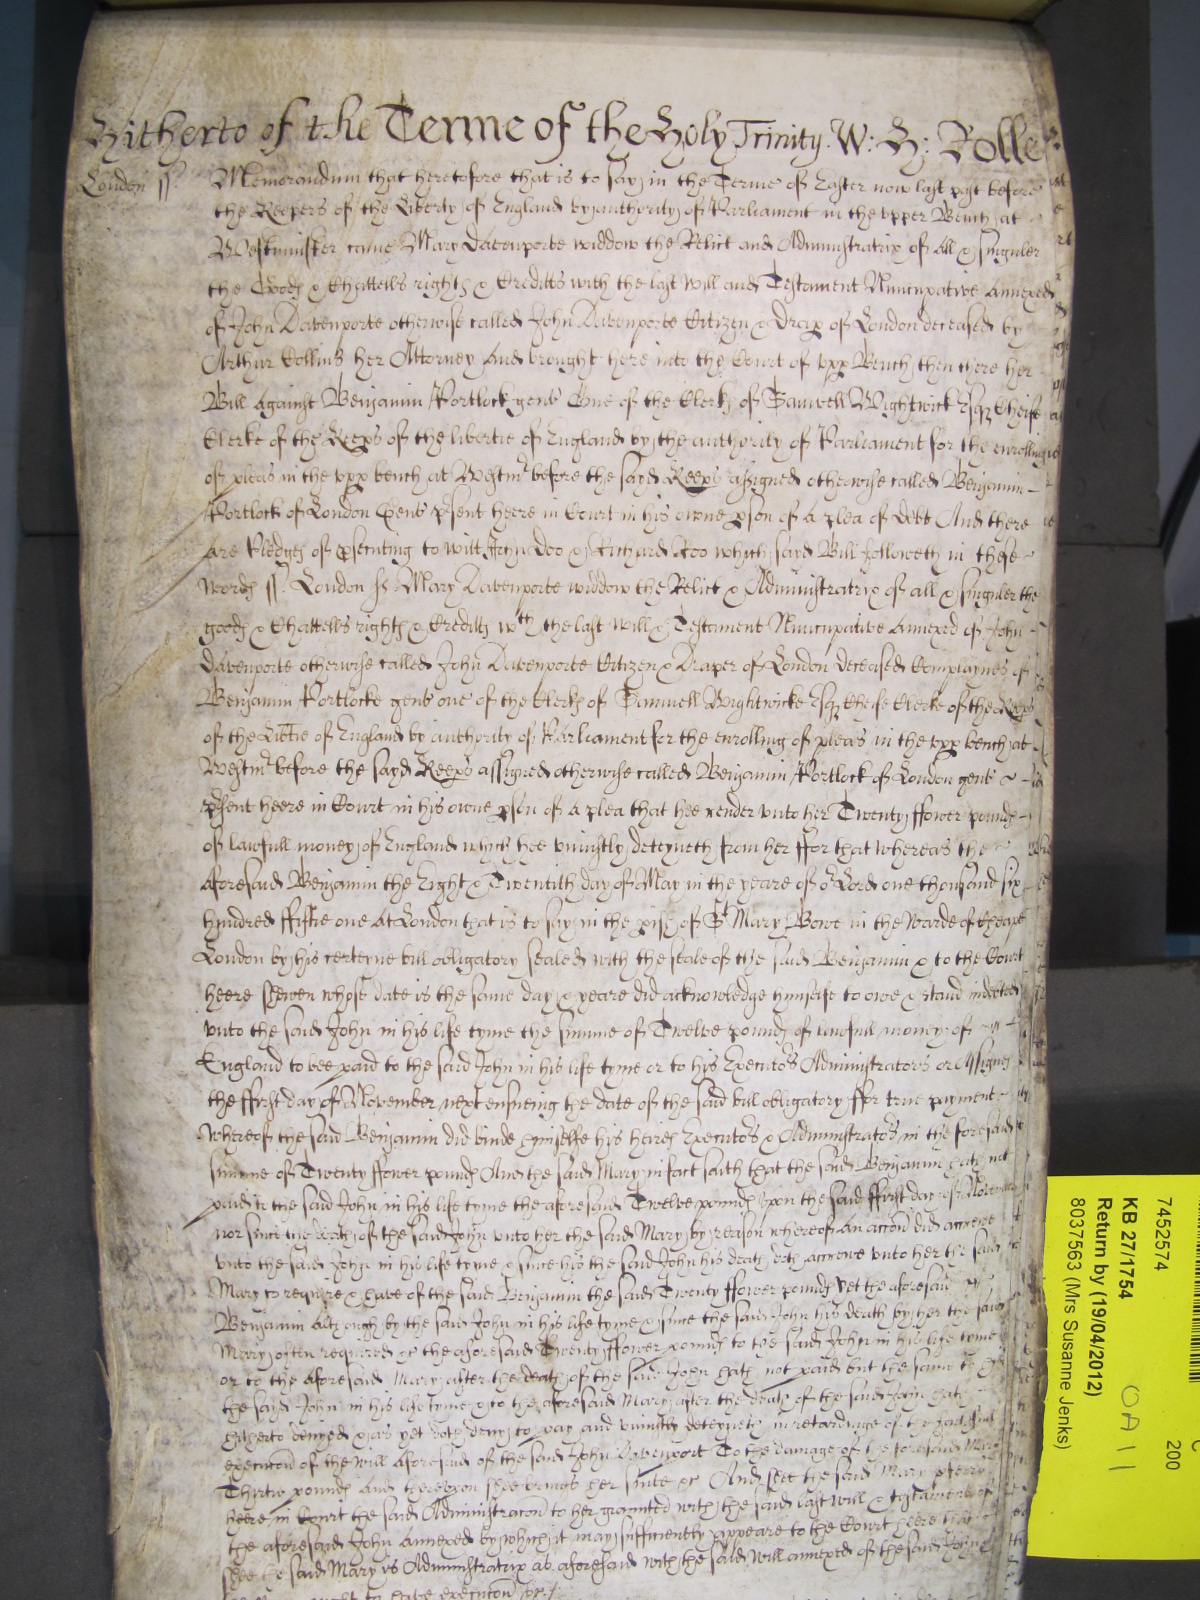 Hitherto of the Terme of the Holy Trinity. W: H: Rolle
London ss. Memorandum that heretofore that is to say in the Terme of Easter now last past before
the Keepers of the Liberty of England by authority of Parliament in the vpper Bench at
Westminster came Mary Davenporte widdow the Relict and Administratrix of All & singuler
the Goods & Chattells rights & Creditts with the last will and Testament Nuncupative Annexed
of John Davenporte otherwise called John Davenporte Citizen & Drap of London deceased by
Arthur Collins her Attorney And brought here into the Court of vpp Bench then there her
Bill Against Benjamin Portlock gent One of the Clerks of Samuell Wightwick Esqr Cheife
Clerke of the Keeps of the libertie of England by the authority of Parliament for the enrolling
of pleas in the vpp bench at Westmr before the sayd Keeps assigned otherwise called Benjamin
Portlock of London Gent psent heere in Court in his owne pson of A plea of debt And there
are Pledges of psecuting to witt John Doo & Richard Roo which said Bill followeth in these
words ss. London ss Mary Davenporte widdow the Relict & Administratrix of all & singuler the
goods & Chattells rights & Creditts wth the last will & Testament Nuncupative Annexed of John
Davenporte otherwise called John Davenporte Citizen & Draper of London deceased Complaynes of
Benjamin Portlocke gent one of the Clerks of Samuell Wightwicke Esqr Cheife Clerke of the Keeps
of the Libtie of England by authority of Parliament for the enrolling of pleas in the vpp bench at
Westmr before the sayd Keeps assigned otherwise called Benjamin Portlock of London gent
psent heere in Court in his owne pson of A plea that hee render vnto her Twenty ffower pounds
of lawfull money of England which hee vniustly deteyneth from her ffor that whereas the
aforesaid Benjamin the Eight & Twentith day of May in the yeare of or Lord one thousand six
hundred fiftie one At London that is to say in the pish of St Mary Bowe in the Warde of Cheape
London by his certeyne bill obligatory sealed with the seale of the said Benjamin & to the Court
heere shewen whose date is the same day & yeare did acknowledge himselfe to owe & stand indebted
vnto the said John in his life tyme the summe of Twelve pounds of lawfull money of
England to bee paid to the said John in his life tyme or to his Executors Administrators or Assignes
the ffirst day of November next ensueing the date of the said bill obligatory ffor true payment
whereof the said Benjamin did binde himselfe his heires Executors & Administrators in the foresaid
summe of Twenty ffower pounds And the said Mary in fact saith that the said Benjamin hath not
paid to the said John in his life tyme the aforesaid Twelve pounds vpon the said ffirst day of November
nor since the death of the said John vnto her the said Mary by reason whereof An accon did accrewe
vnto the said John in his life tyme & since his the said John his death doth accrewe vnto her the said
Mary to require & have of the said Benjamin the said Twenty ffower pounds Yet the aforesaid
Benjamin Although by the said John in his life tyme & since the said John his death by her the said
Mary often required &c the aforesaid Twenty ffower pounds to the said John in his life tyme
or to the aforesaid Mary after the death of the said John hath not paid but the same to
the sayd John in his life tyme & to the aforesaid Mary after the death of the said John hath
hitherto denyed & as yet doth deny to pay and vniustly deteyneth in retardinge of the
execucon of the will Aforesaid of the said John Davenport To the damage of the foresaid Mary
Thirtie pounds And therevpon shee brings her suite &c And shee the said Mary
heere in Court the said Administracon to her graunted with the said last will & testament of
the aforesaid John Annexed by which it may sufficiently appeare to the Court heere that
shee the said Mary is Administratrix as aforesaid with the said will annexed of the said John
to have execucon
7452574
200
KB 27/1754
Return by (19/04/2012)
8037563 (Mrs Susanne Jenks)